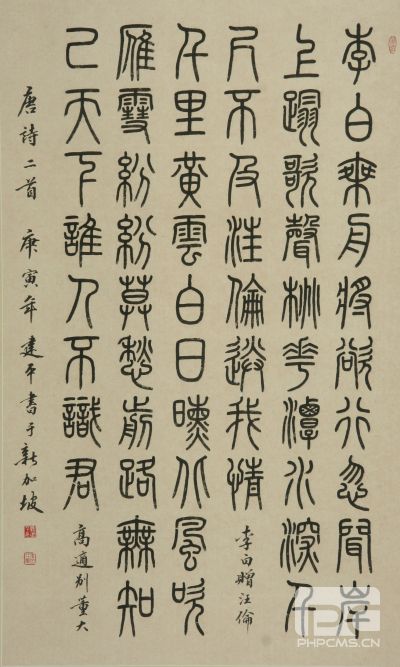 李白乘舟將欲行忽聞岸
上踏歌聲桃花潭水深千
尺不及汪倫送我情
李白贈汪倫
千里黃雲白日曛北風吹
雁雪紛紛莫愁前路無知
己天下誰人不識君
高適別董大
唐詩二首 庚寅年 建平書于新加坡
PHPCMS.CN